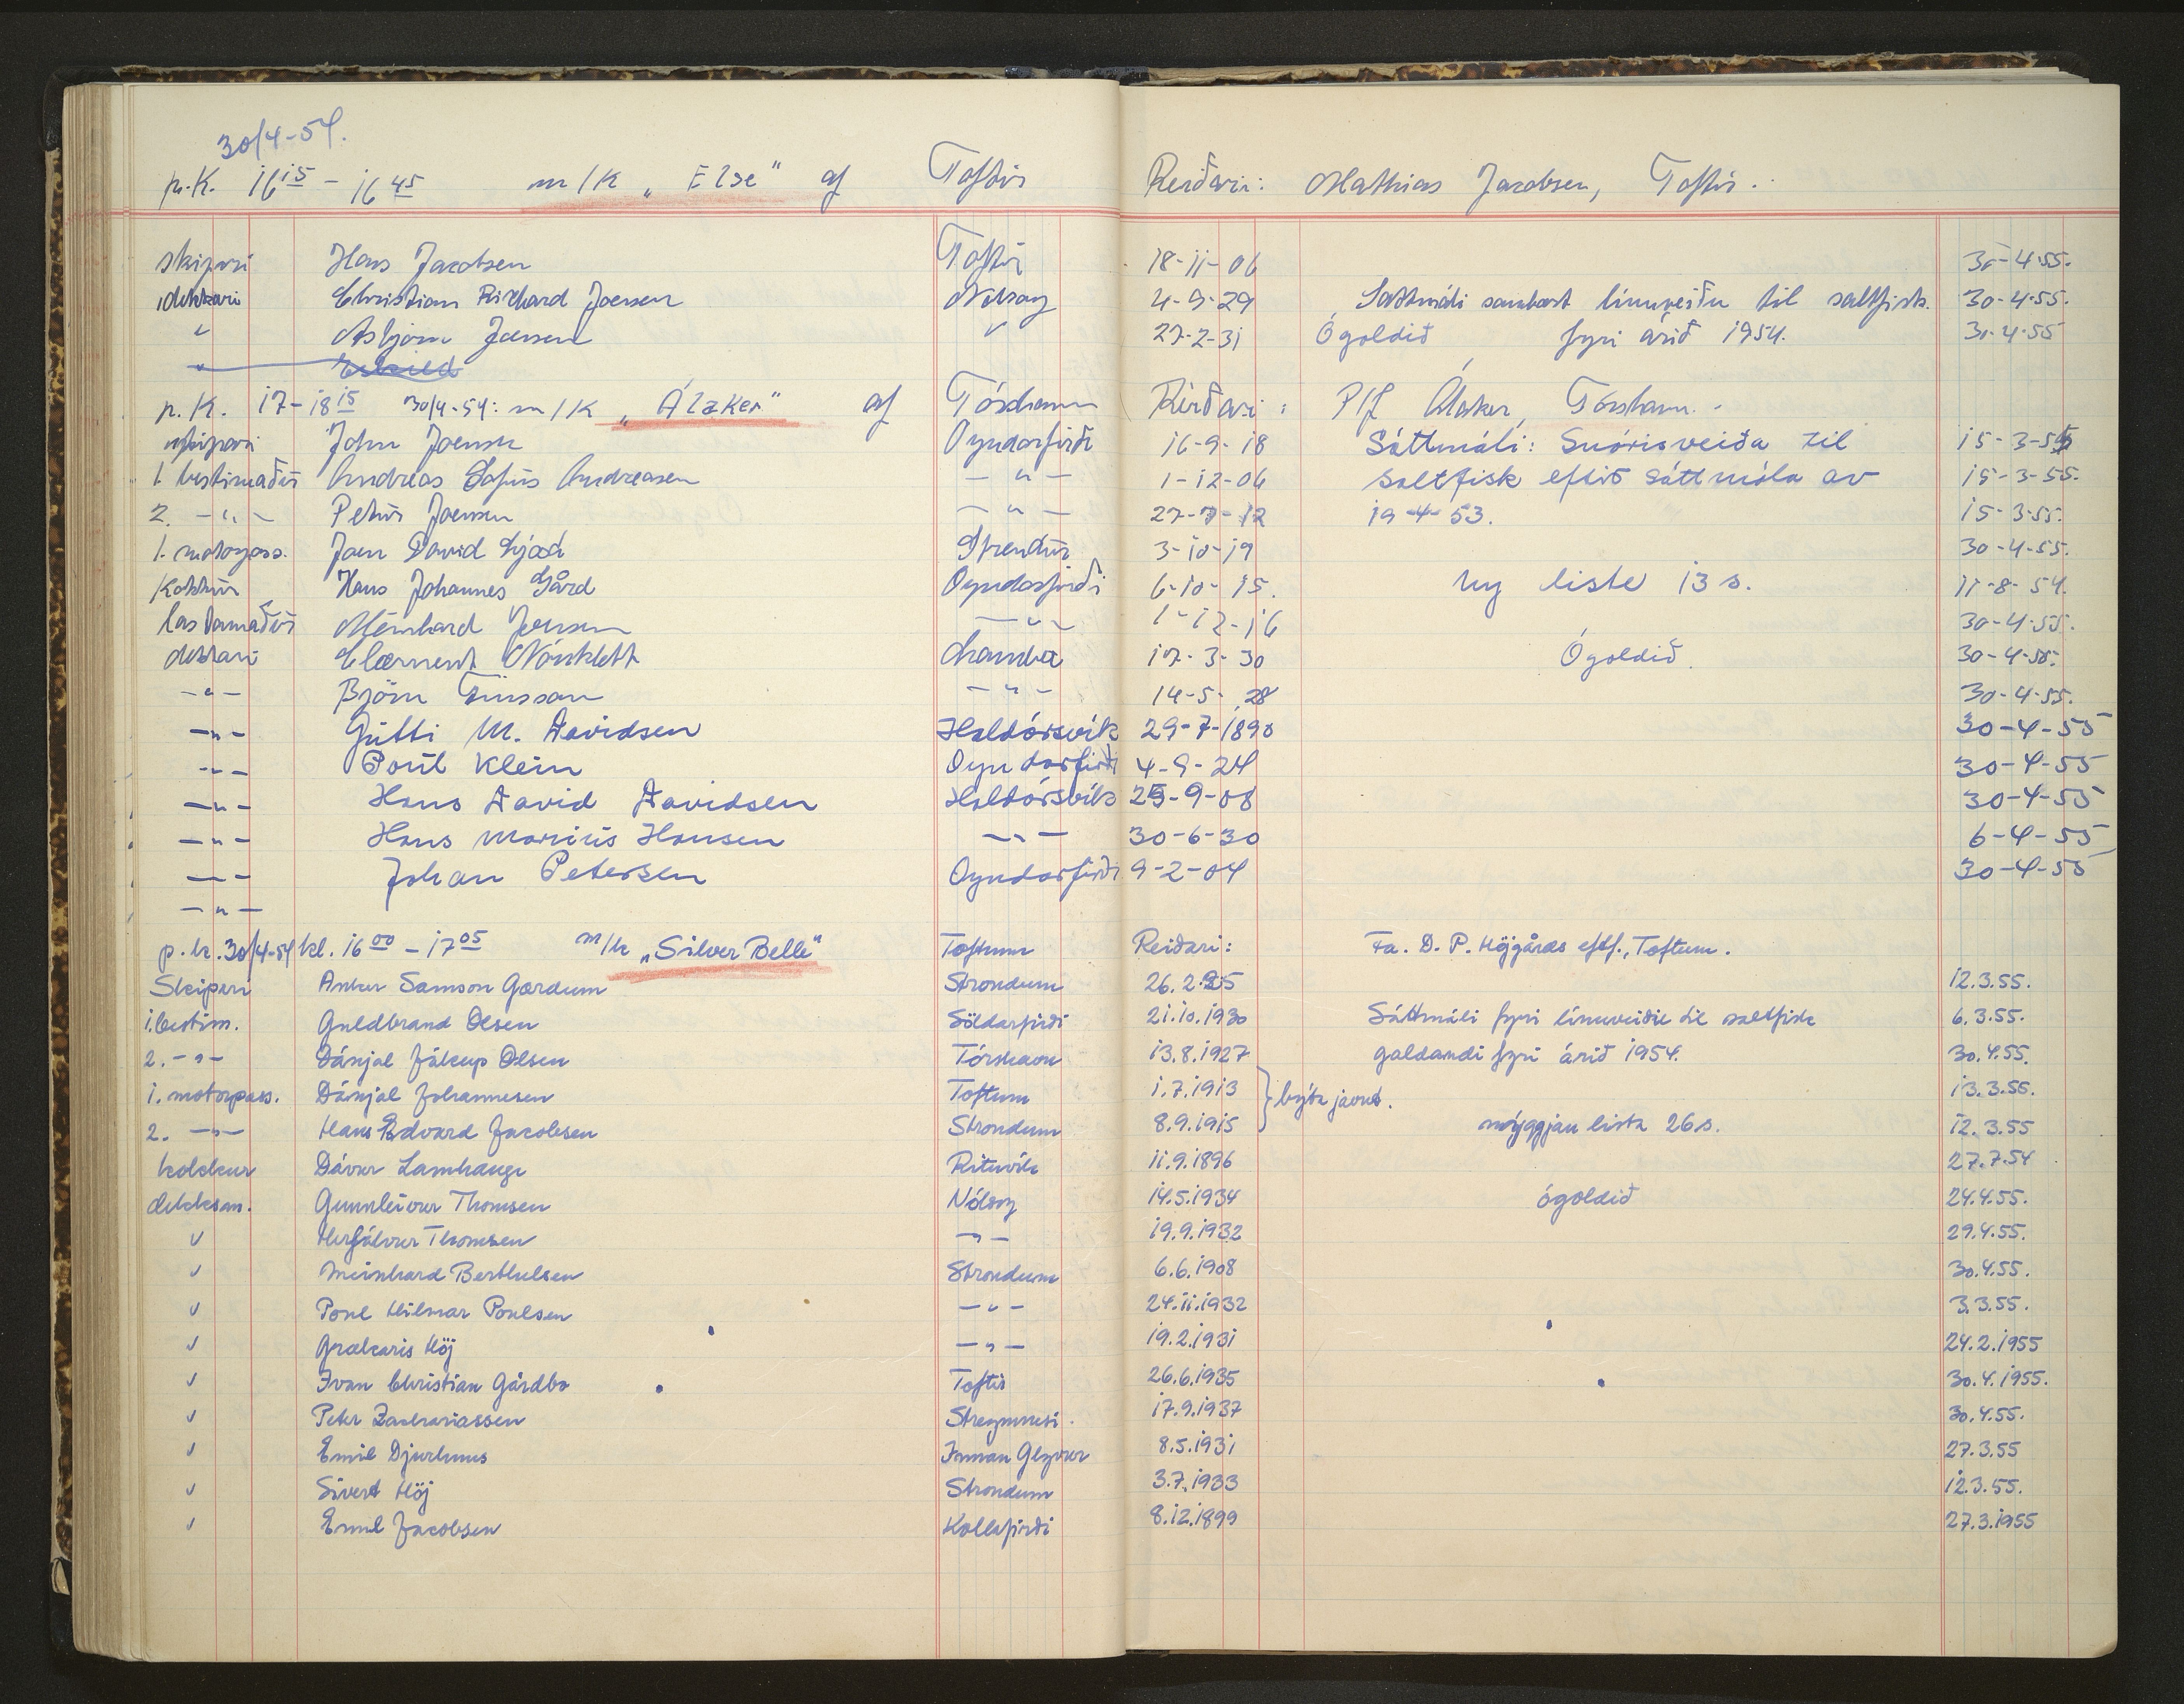 30/4-54.
p.K. 16 15 - 16 45 m/K „Else" af Toftir Reiðari: Mathias Jacobsen, Toftir.
skipari Hans Jacobsen Toftir 18-11-06 30-4-55.
dekkari Christian Richard Joensen Nolsoy 4-9-29 Sáttmáli sambært línuveiðu til saltfisk. 30-4-55.
" Asbjørn Joensen " 27-2-31 Ógoldið fyri árið 1954. 30-4-55
"
p.K. 17-18 15 30/4-54: m/K „Álaker" af Tórshavn Reiðari: P/f Álaker, Tórshavn.
skipari John Joensen Oyndarfirði 16-9-18 Sáttmáli: Snórisveiða til 15-3-55
1. bestimaður Andreas Sofus Andreasen - " - 1-12-06 saltfisk eftir sáttmála av 15-3-55.
2. - " - Petur Joensen - " - 27-7-12 19-4-53. 15-3-55.
1. motorpass. Joen David Strendur 3-10-19 30-4-55.
Kokkur Hans Johannes Gård Oyndarfirði 6-10-15. Ny liste 13 s. 11-8-54.
lastamaður Meinhard Joensen - " - 1-12-16 30-4-55.
dekkari Clement Nónklett Lamba 17-3-30 Ógoldið. 30-4-55.
- " - Björn - " - 14-5-28 30-4-55.
- " - Gutti M. Davidsen Haldórsvík 29-7-1890 30-4-55
- " - Poul Klein Oyndarfirði 4-9-24 30-4-55
- " - Hans David Davidsen Haldórsvík 25-9-08 30-4-55
- " - Hans Marius Hansen - " - 30-6-30 6-4-55
- " - Johan Petersen Oyndarfirði 9-2-04 30-4-55
- " -
p.k. 30/4-54 kl. 16 00 - 17 05 m/k „Silver Belle" Toftum Reiðari: Fa. D. P. Höjgårds eftf., Toftum.
Skipari Anker Samson Gærdum Strondum 26.2.25 12.3.55.
1. bestim. Guldbrand Olsen Söldarfirði 21.10.1930 Sáttmáli fyri línuveiðu til saltfisk 6.3.55.
2. - " - Dánjal Jákup Olsen Tórshavn 13.8.1927 galdandi fyri árið 1954. 30.4.55.
1. motorpass. Dánjal Johannesen Toftum 1.7.1913 } býta javnt. 13.3.55.
2. - " - Hans Edvard Jacobsen Strondum 8.9.1915 nýggjan lista 26 s. 12.3.55
kokkur Dávur Lamhauge Rituvík 11.9.1896 27.7.54
dekksm. Gunnleivur Thomsen Nólsoy 14.5.1934 ógoldið 24.4.55.
" Herfálvur Thomsen - " - 19.9.1932 29.4.55.
" Meinhard Berthelsen Strondum 6.6.1908 30.4.55.
" Poul Hilmar Poulsen - " - 24.11.1932 3.3.55.
" Grækaris Höj - " - 19.2.1931 24.2.1955
" Ivan Christian Gárdbo Toftir 26.6.1935 30.4.1955.
" Peter Zachariassen Streymnesi. 17.9.1937 30.4.55.
" Emil Djurhuus Innan Glyvur 8.5.1931 27.3.55
" Sivert Höj Strondum 3.7.1933 12.3.55.
" Emil Jacobsen Kollafirði 8.12.1899 27.3.1955